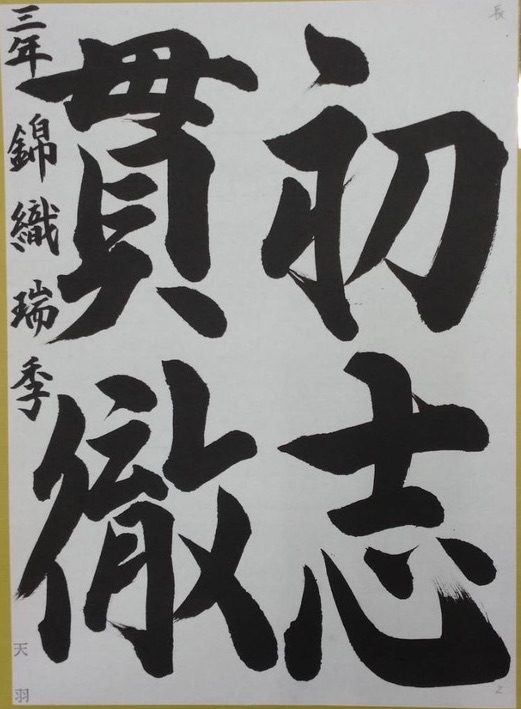 初志
貫徹
三年 錦織瑞季
天羽
長
2